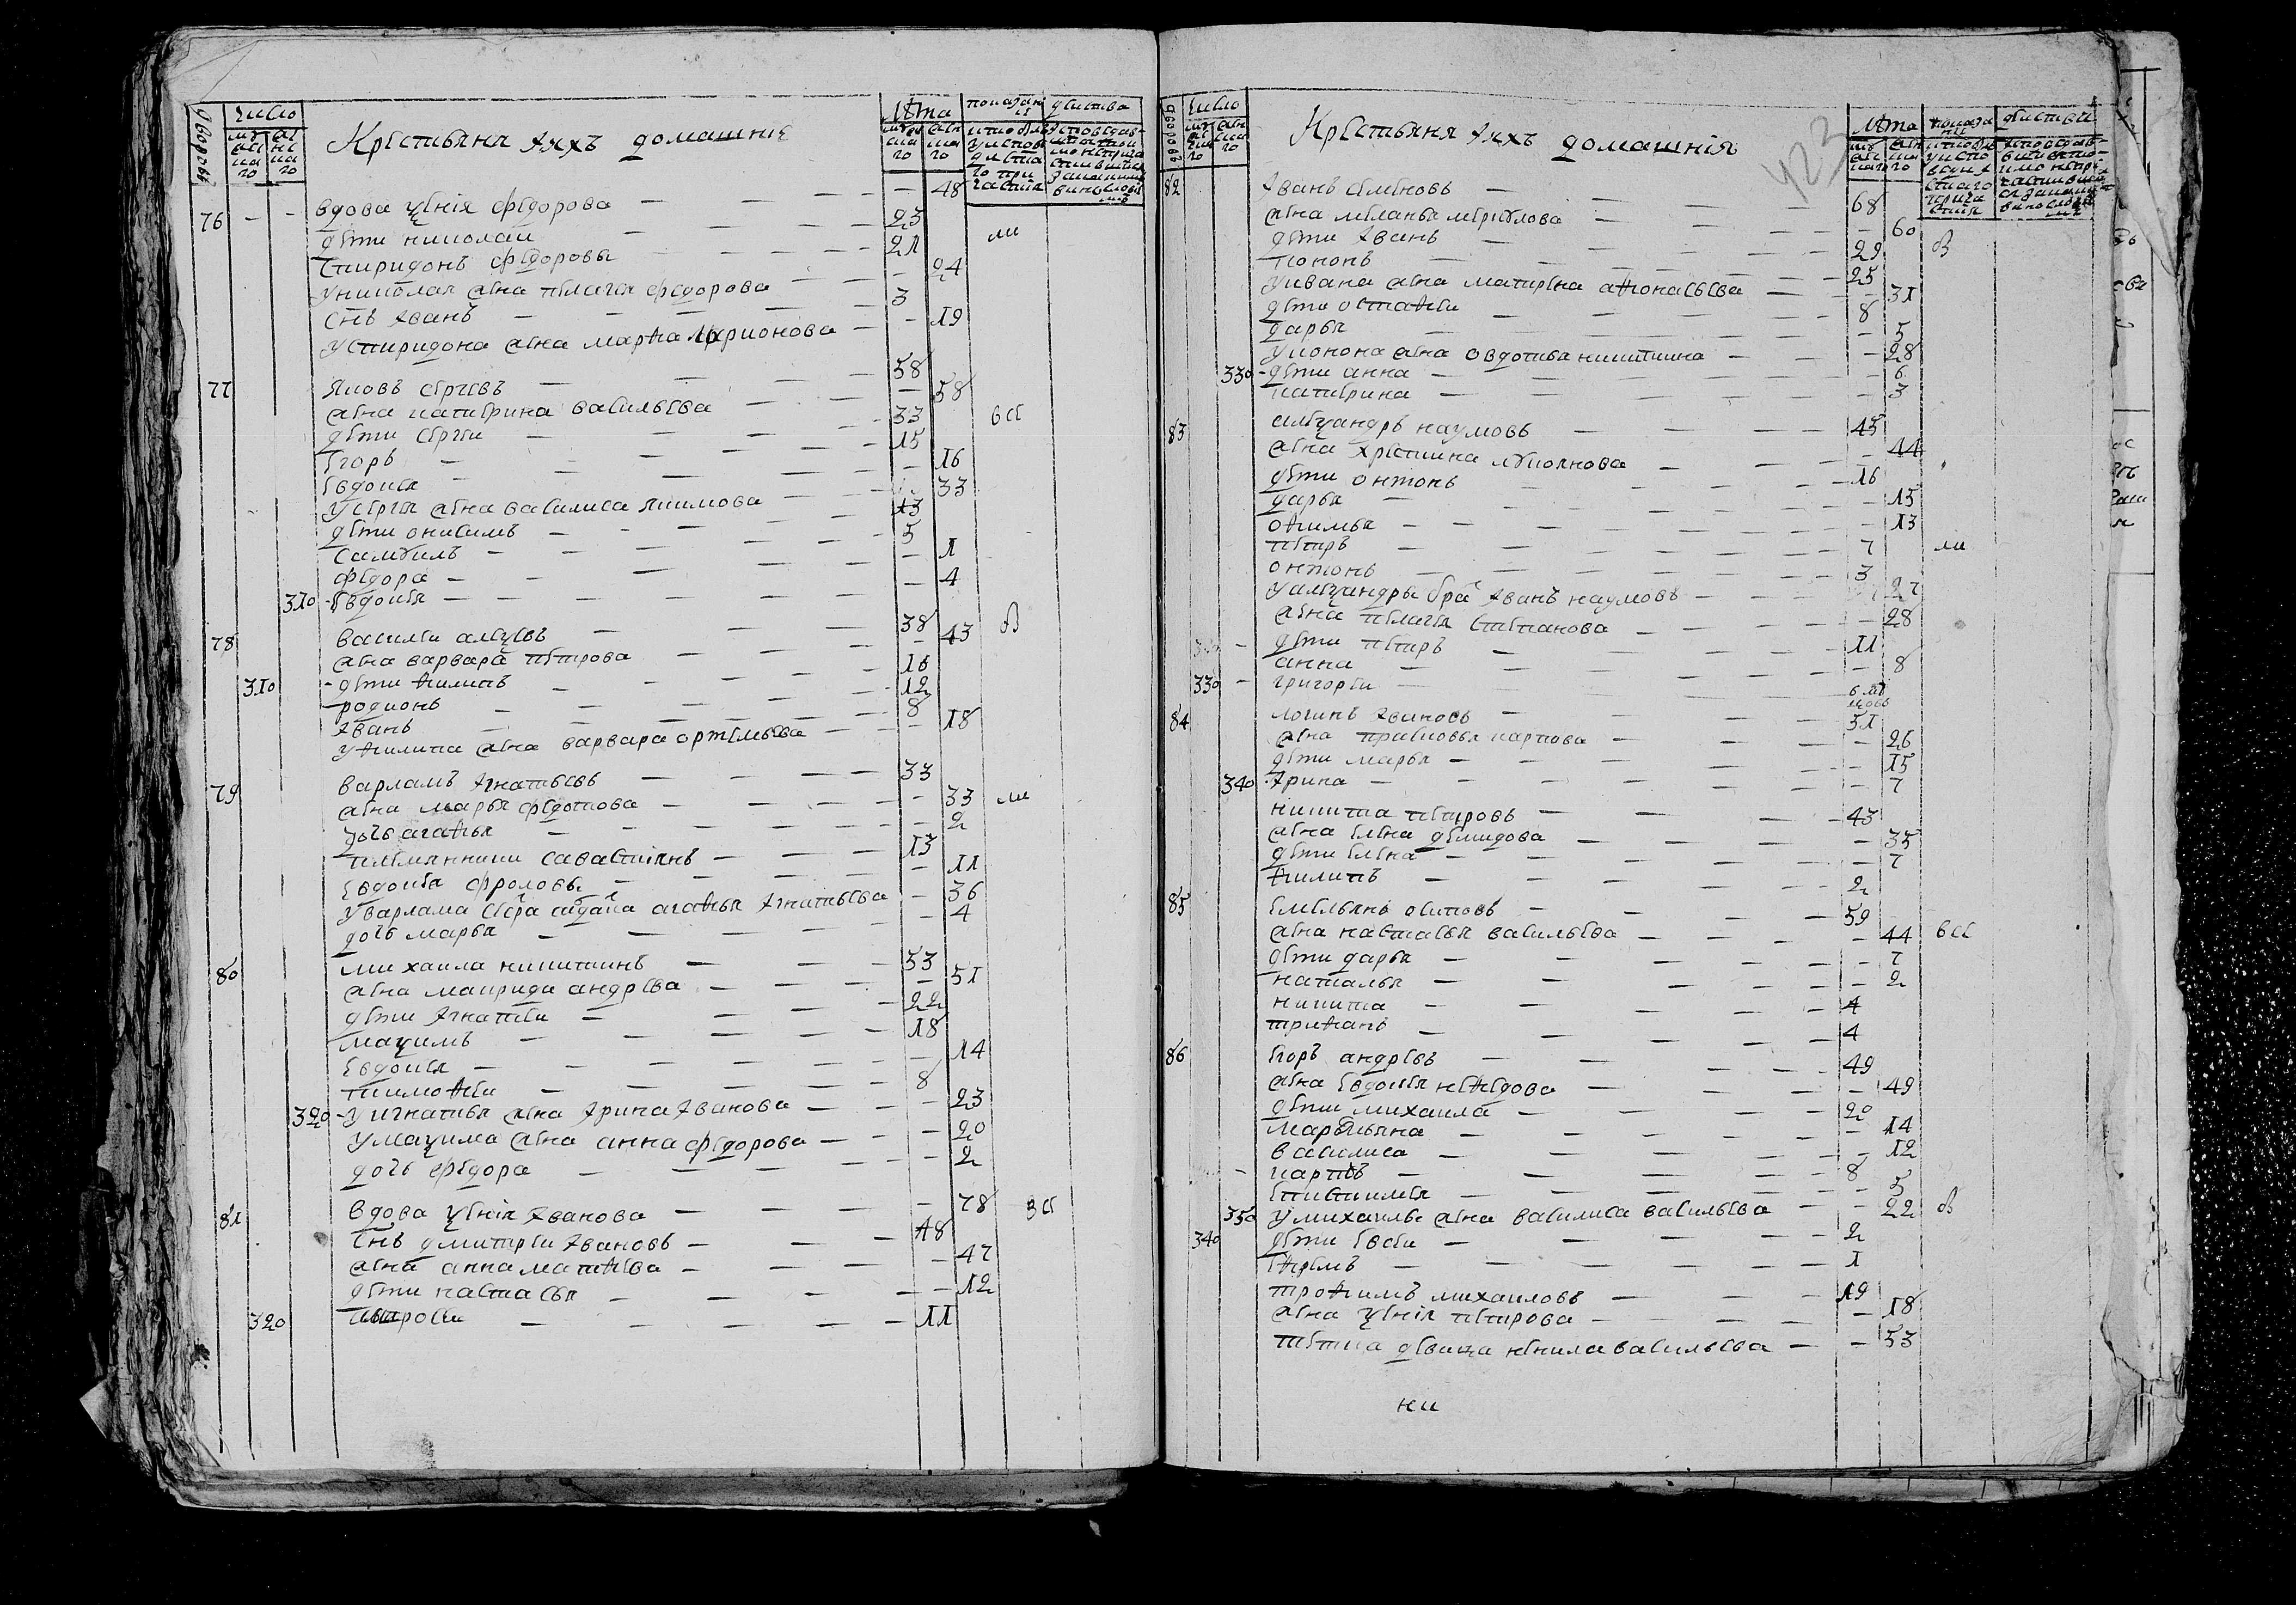 Крестьяня ихъ домашние
лѣта
76 вдова ѯения федорова 48
дѣти николаи 23 ли
спиридонъ федоровы 21
у николая жена пелагея федорова 24
снъ иванъ 3
у спиридона жена марѳа ларионова 19
77 яковъ сергеевъ 58
жена катерина васильева 58
дѣти сергеи 33 все
егоръ 15
евдокея 16
у сергея жена василиса якимова 33
дѣти онисимъ 13
самоилъ 5
федора 1
310 евдокея 4
78 василеи алеѯеевъ 38 в
жена варвара петрова 43
310 дѣти ѳилипъ 16
родионъ 12
иванъ 8
у ѳилипа жена варвара ортемьева 18
79 варламъ игнатьевъ 33
жена марья федотова 33 ли
дочь агаѳья 2
племянники савастиянъ 13
евдокея фроловы 11
у варлама сестра агаѳья игнатьева 36
дочь марья 4
80 михаила никитинъ 53
жена маврида андреева 51
дѣти игнатеи 22
маѯимъ 18
евдокея 14
тимоѳеи 8
320 у игнатья жена ирина иванова 23
у маѯима жена анна федорова 20
дочь федора 2
81 вдова ѯения иванова 78 зсе
снъ дмитреи ивановъ 48
жена анна матѳеева 47
дѣти настасья 12
320 11
423
Крестьяня ихъ домашния
лѣта
82 иванъ семеновъ 68
жена меланья 60
дѣти иванъ 29 в
кононъ 25
у ивана жена матрена аѳонасьева 31
дѣти остаѳеи 8
дарья 5
у конона жена овдотья никитина 28
330 дѣти анна 6
катерина 3
83 алеѯандръ наумовъ 45
жена христина лукоянова 44
дѣти онтонъ 16
дарья 15
оѳимья 13
петръ 7 ли
онтонъ 3
у алеѯандры братъ иванъ наумовъ 27
жена пелагея степанова 28
дѣти петръ 11
анна 8
330 григореи 6 мецовъ
84 логинъ ивановъ 51
жена прасковья карпова 26
дѣти марья 15
340 ирина 7
никита петровъ 43
жена елена демидова 35
дѣти елена 7
ѳилипъ 2
85 емельянъ осиповъ 59
жена настасья васильева 44 все
дѣти дарья 7
наталья 2
никита 4
триѳанъ 4
86 егоръ андреевъ 49
жена евдокея неѳедова 49
дѣти михаила 20
маремьяна 14
василиса 12
карпъ 8
епистимея 5
350 у михаилы жена василиса васильева 22 в
340 дѣти евсеи 2
еѳремъ 1
троѳимъ михаиловъ 19
жена ѯения петрова 18
тетка девица ненила васильева 53
ни